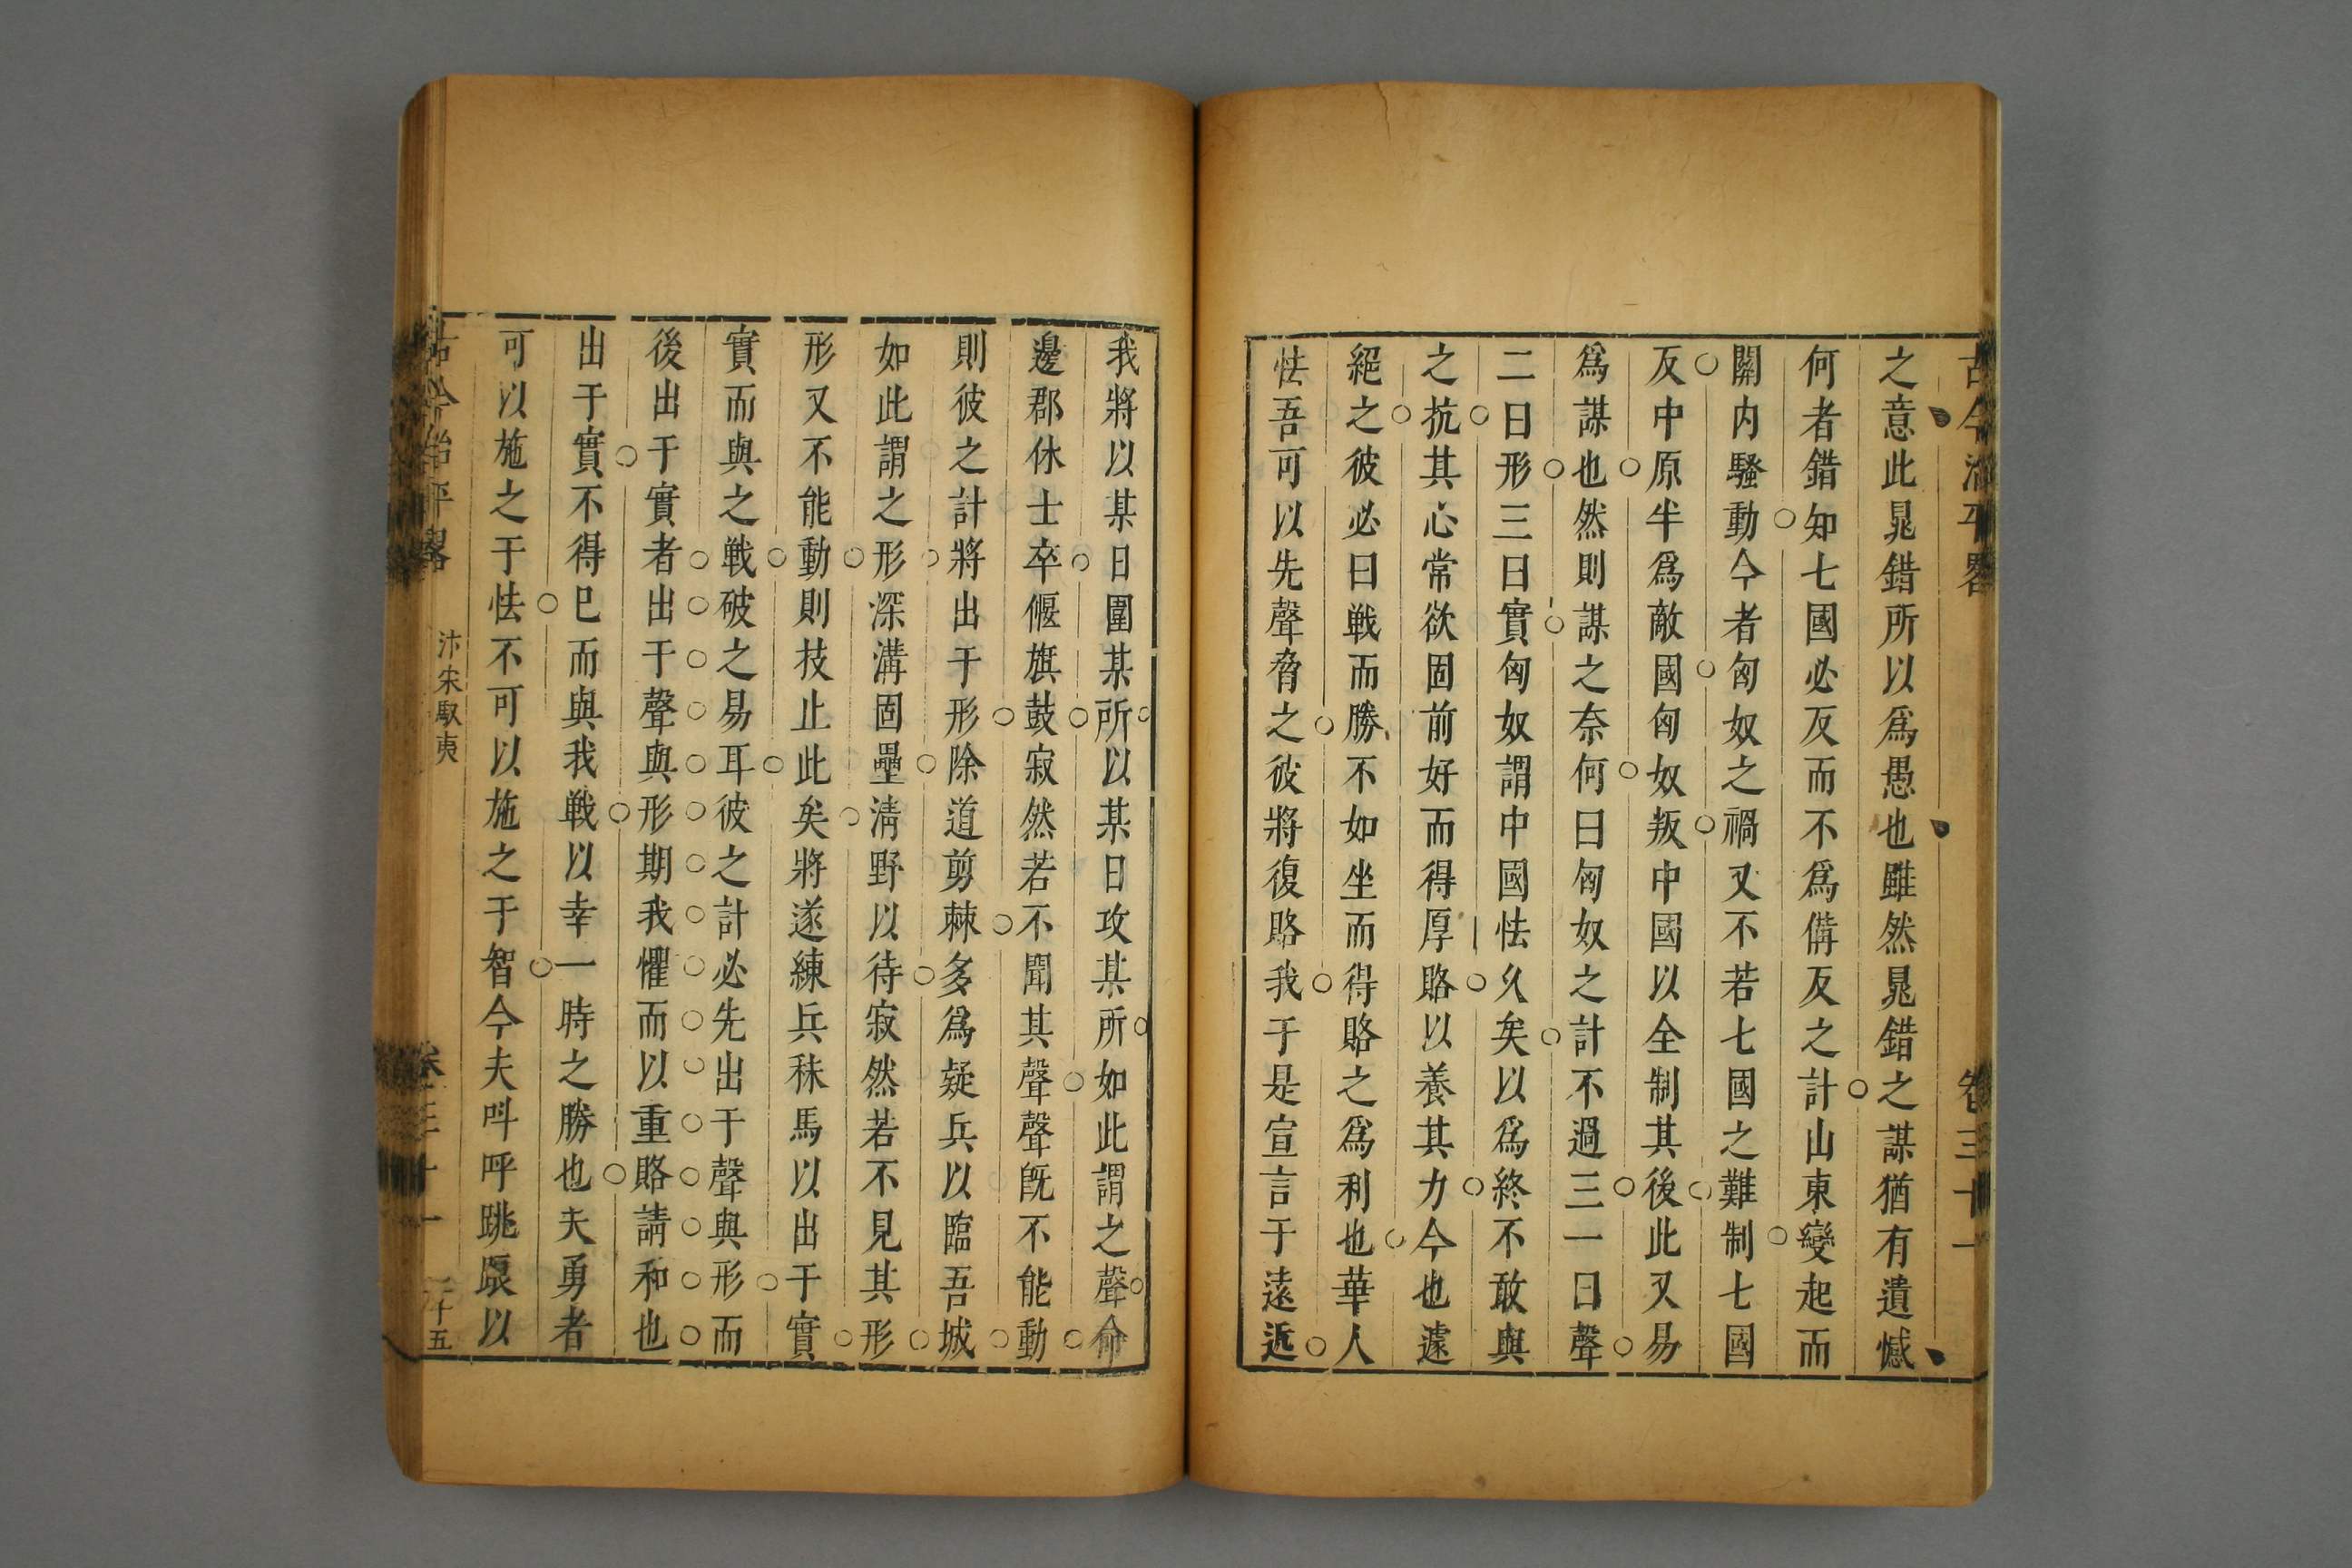 古今治平畧 卷三十一
之意此晁錯所以爲愚也雖然晁錯之謀猶有遺憾
何者錯知七國必反而不爲備反之計山東變起而
關内騷動今者匈奴之禍又不若七國之難制七國
反中原半爲敵國匈奴叛中國以全制其後此又易
爲謀也然則謀之奈何曰匈奴之計不過三一曰聲
二曰形三曰實匈奴謂中國怯久矣以爲終不敢與
之抗其心常欲固前好而得厚賂以養其力今也遽
絕之彼必曰戰而勝不如坐而得賂之爲利也華人
怯吾可以先聲脅之彼將復賂我于是宣言于遠近
我將以某日圍某所以某日攻某所如此謂之聲命
邊郡休士卒偃旗鼓寂然若不聞其聲聲旣不能動
則彼之計將出于形除道剪棘多爲疑兵以臨吾城
如此謂之形深溝固壘淸野以待寂然若不見其形
形又不能動則技止此矣將遂練兵秣馬以出于實
實而與之戰破之易耳彼之計必先出于聲與形而
後出于實者出于聲與形期我懼而以重賂請和也
出于實不得已而與我戰以幸一時之勝也夫勇者
可以施之于怯不可以施之于智今夫呌呼跳踉以
古今治平畧 汴宋馭夷 卷三十一 二十五